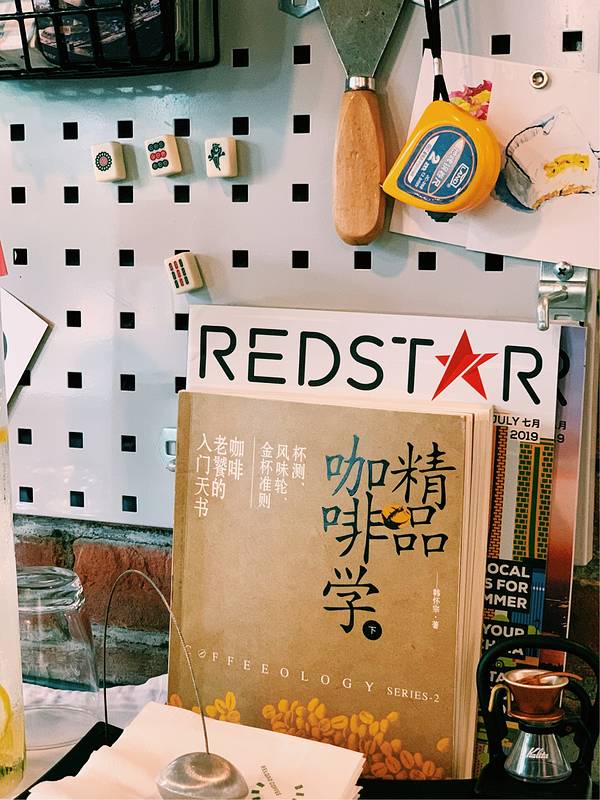 2
REDSTAR
JULY 七月
2019
9
精品
咖啡学
下
韩怀宗·著
杯测、
风味轮、
金杯准则
咖啡
老饕的
入门天书
COFFEEOLOGY SERIES-2
OCAL
S FOR
MMER
YOUR
Kalita